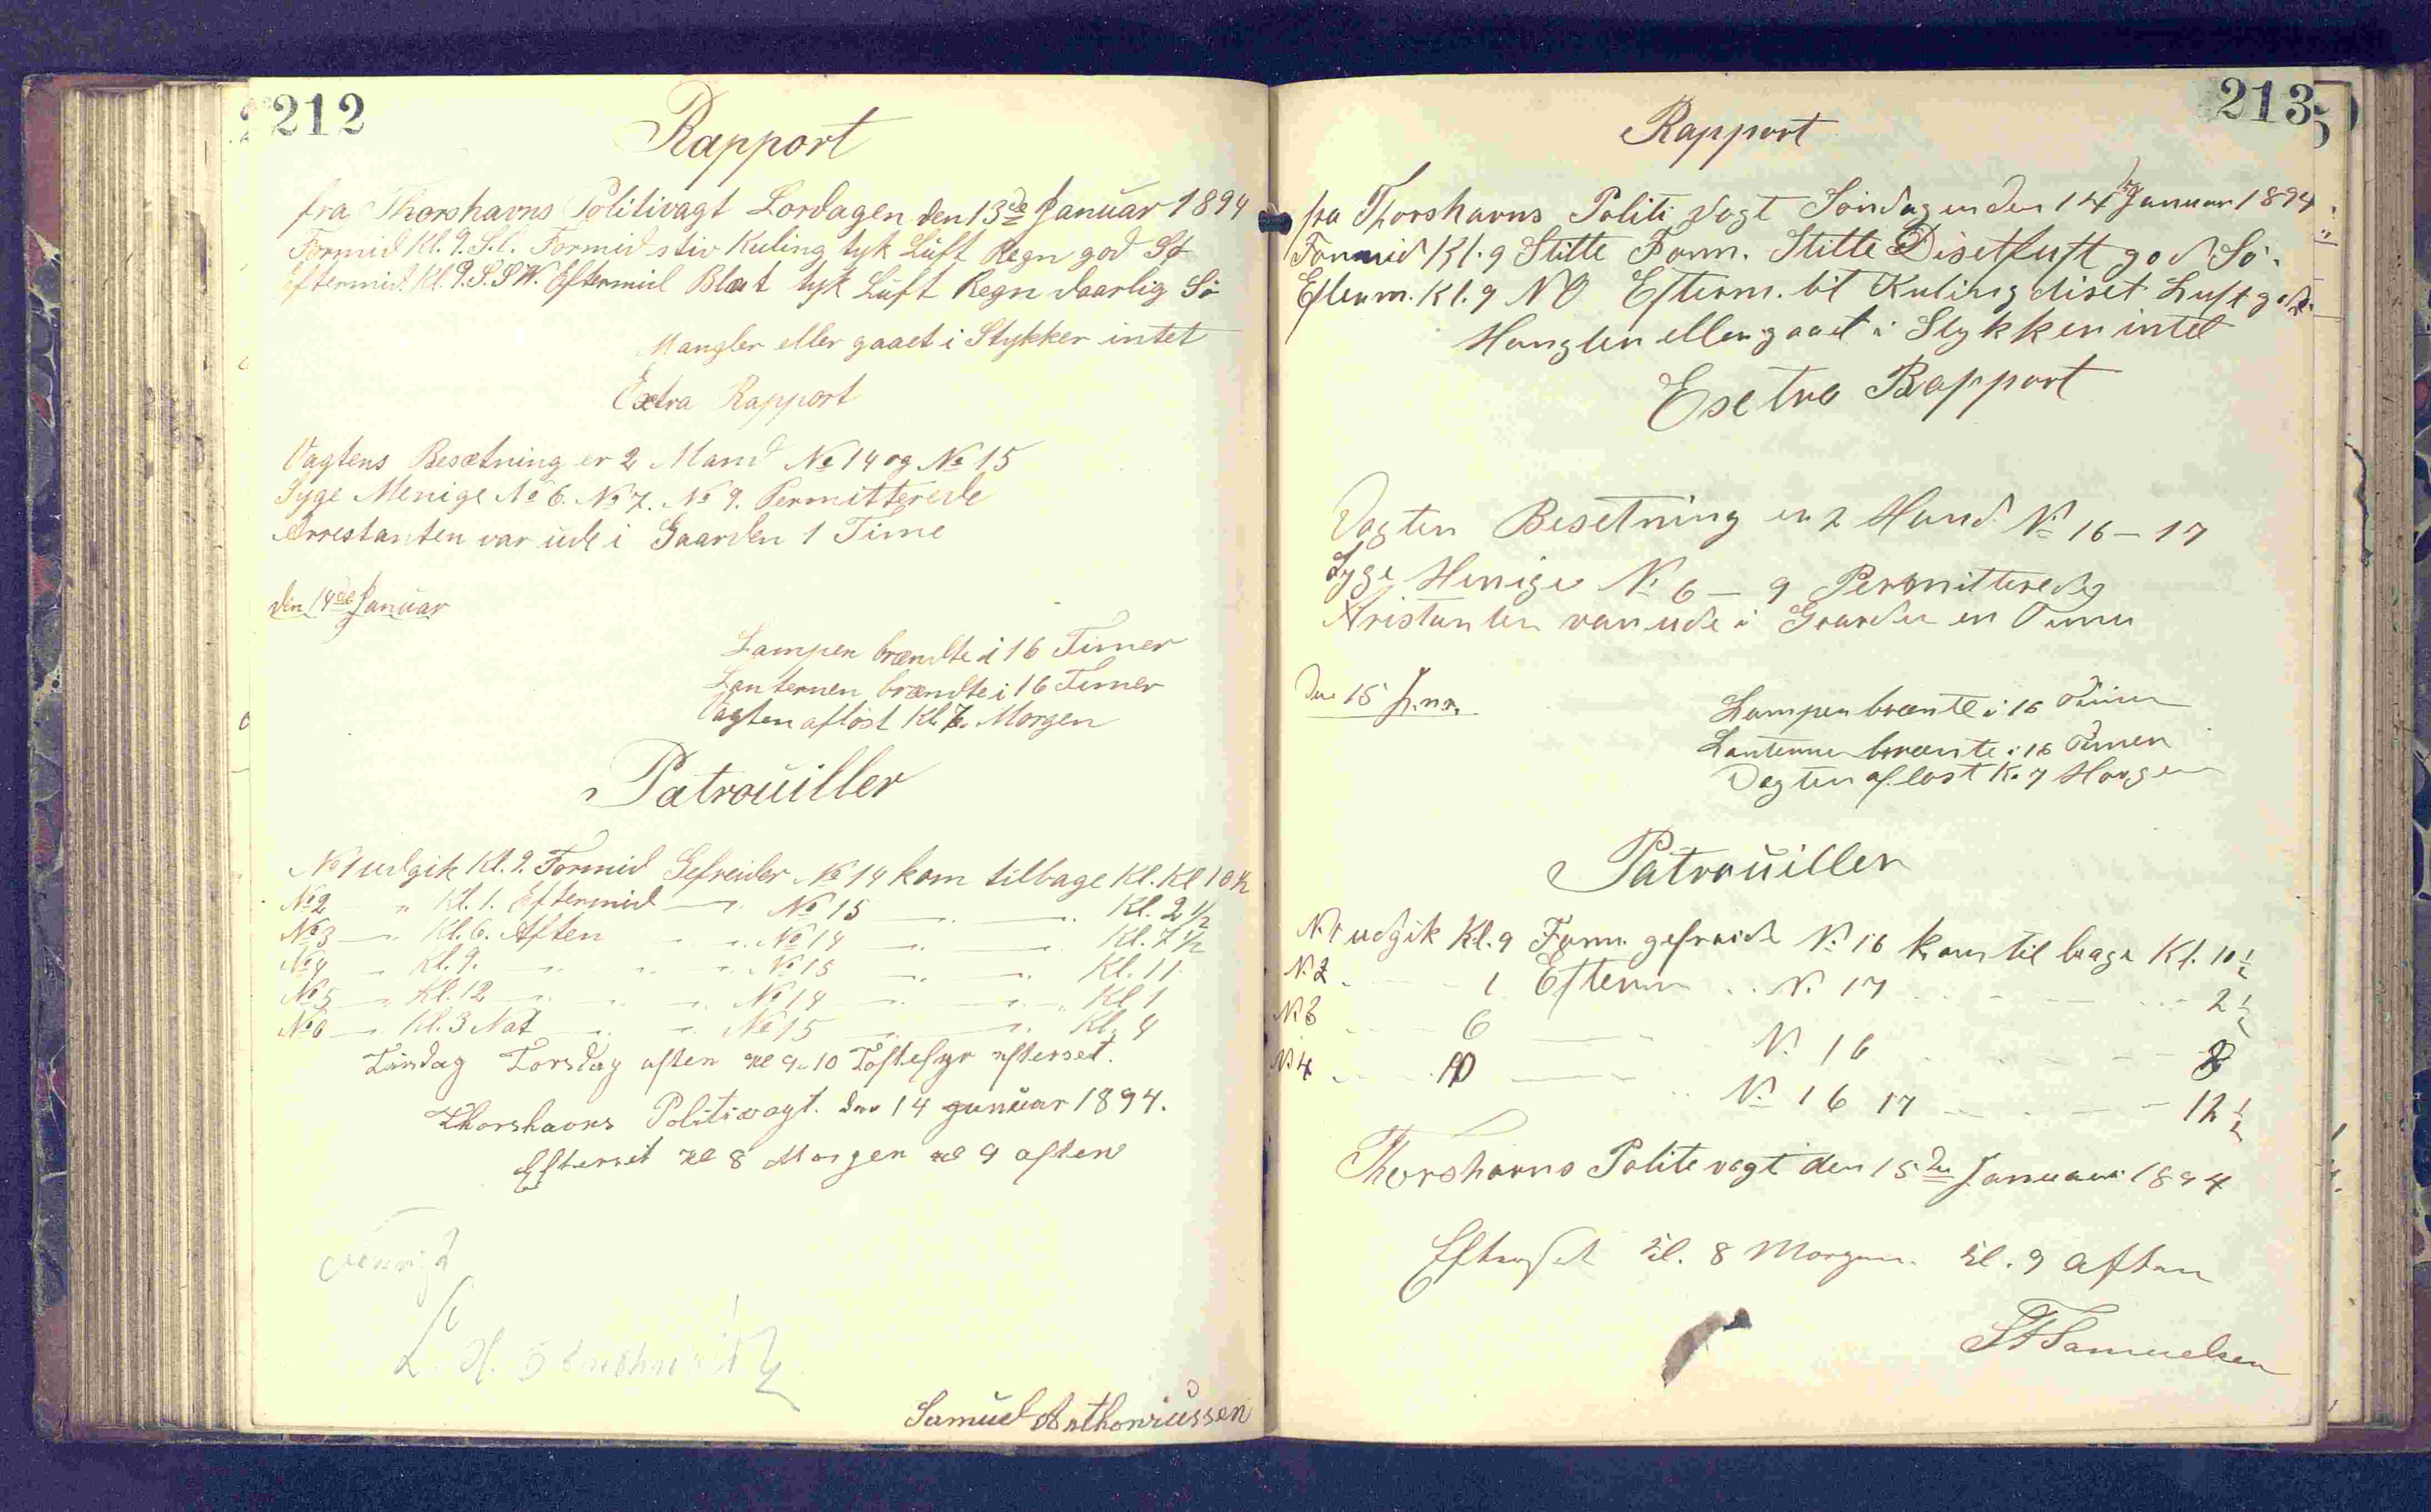 212
Rapport
fra Thorshavns Politivagt Lordagen den 13de Januar 1894
Formid Kl. 9. S.O. Formid stiv Kuling tyk Luft Regn god Sø
Eftermid. Kl. 9. S.S.W. Eftermid Blæst tyk Luft Regn daarlig Sö
Mangler eller gaaet i Stykker intet
Extra Rapport
Vagtens Besætning er 2 Mand No 14 og No 15
Syge Menige No 6. No 7. No 9. Permitterede
Arrestanten var ude i Gaarden 1 Time
den 14de Januar
Lampen brændte i 16 Timer
Lanternen brændte i 16 Timer
Vagten aflöst Kl. 7. Morgen
Patrouiller
No 1 udgik Kl. 9. Formid Gefreider No 14 kom tilbage Kl. Kl 10½
No 2 " Kl. 1. Eftermid — " No 15 — " — " Kl. 2½
No 3 — " Kl. 6. Aften " " No 14 — " — " Kl. 7½
No 4 — " Kl. 9. — " " " No 15 — " — " Kl. 11
No 5 — " Kl. 12 — " " " No 14 — " — " Kl 1
No 6 — " Kl. 3 Nat — " " No 15 — " — " Kl. 4
Torsdag aften kl 9-10 Toftefyr efterset.
Thorshavns Politivagt. den 14 januar 1894.
Efterset kl 8 Morgen kl 9 aften
Samuel Anthoniussen
213
Rapport
fra Thorshavns Politi Vagt Söndagen den 14de Januar 1894
Formid Kl. 9 Stille Form. Stille Diset luft god Sö.
Efterm. Kl. 9 NO Efterm. bl Kuling diset Luft god
Mangler eller gaaet i Stykker intet
Esctra Rapport
Vagten Besetning er 2 Mand No 16 – 17
Syge Menige No 6 – 9 Permitterede
Aristanten var ude i Gaarden en Time
Den 15 Jnr.
Lampen brænte i 16 Timer
Lanternen brænte i 16 Timer
Vagten aflöst K. 7 Morgen
Patrouiller
No 1 udgik Kl. 9 Form. gefreide No 16 kom til bage Kl. 10½
No 2 - - - 1 Efterm - - No 17 - - - 2½
No 3 - - - 6 — - - No 16 - - - 8
No 4 - - - 10 — - - No 16 17 - - - 12½
Thorshavns Politevagt den 15de Januar 1894
Efterset Kl. 8 Morgen. Kl. 9 aften
Samuelsen